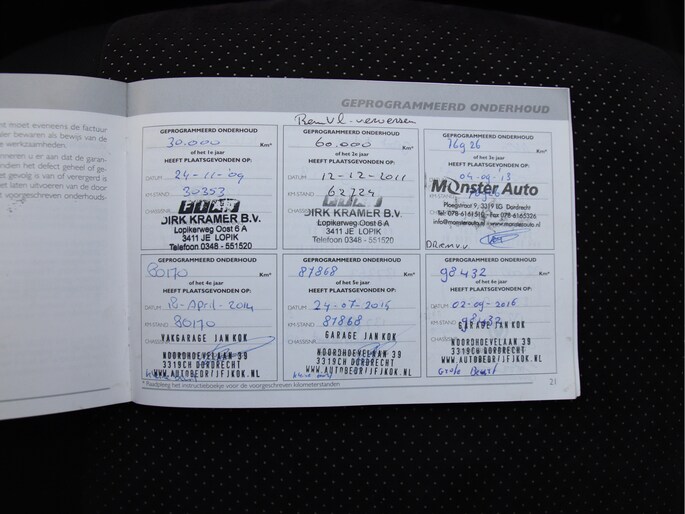 et moet eveneens de factuur
bewaren als bewijs van de
werkzaamheden.
nneren u er aan dat de garan-
ndien het defect geheel of ge-
gevolg is van of verergerd is
laten uitvoeren van de door
voorgeschreven onderhouds-
GEPROGRAMMEERD ONDERHOUD
Remvl. verversen
GEPROGRAMMEERD ONDERHOUD
30.000 Km*
of het 1e jaar
HEEFT PLAATSGEVONDEN OP:
DATUM 24-11-09
KM STAND 30353
CHASSISNR
DIRK KRAMER B.V.
Lopikerweg Oost 6 A
3411 JE LOPIK
Telefoon 0348 - 551520
GEPROGRAMMEERD ONDERHOUD
60.000 Km*
of het 2e jaar
HEEFT PLAATSGEVONDEN OP:
DATUM 12-12-2011
KM STAND 62724
CHASSISNR
DIRK KRAMER B.V.
Lopikerweg-Oost 6 A
3411 JE LOPIK
Telefoon 0348 - 551520
GEPROGRAMMEERD ONDERHOUD
76926 Km*
of het 3e jaar
HEEFT PLAATSGEVONDEN OP:
DATUM 04-09-13
Monster Auto
Ploegstraat 9, 3319 EG Dordrecht
Tel: 078-6161510 Fax 078-6165326
info@monsterauto.nl www.monsterauto.nl
80170 Km*
of het 4e jaar
HEEFT PLAATSGEVONDEN OP:
DATUM 18-April-2014
KM STAND 80170
CHASSISNR
VAKGARAGE JAN KOK
NOORDHOEVELAAN 39
3319CH DORDRECHT
WWW.AUTOBEDRIJFJKOK.NL
GEPROGRAMMEERD ONDERHOUD
87868 Km*
of het 5e jaar
HEEFT PLAATSGEVONDEN OP:
DATUM 24-07-2015
KM STAND 87868
CHASSISNR
GARAGE JAN KOK
NOORDHOEVELAAN 39
3319CH DORDRECHT
WWW.AUTOBEDRIJFJKOK.NL
GEPROGRAMMEERD ONDERHOUD
98432 Km*
of het 6e jaar
HEEFT PLAATSGEVONDEN OP:
DATUM 02-09-2016
KM STAND 98432
CHASSISNR
GARAGE JAN KOK
NOORDHOEVELAAN 39
3319CH DORDRECHT
WWW.AUTOBEDRIJFJKOK.NL
Grote Beurt
* Raadpleeg het instructieboekje voor de voorgeschreven kilometerstanden
21